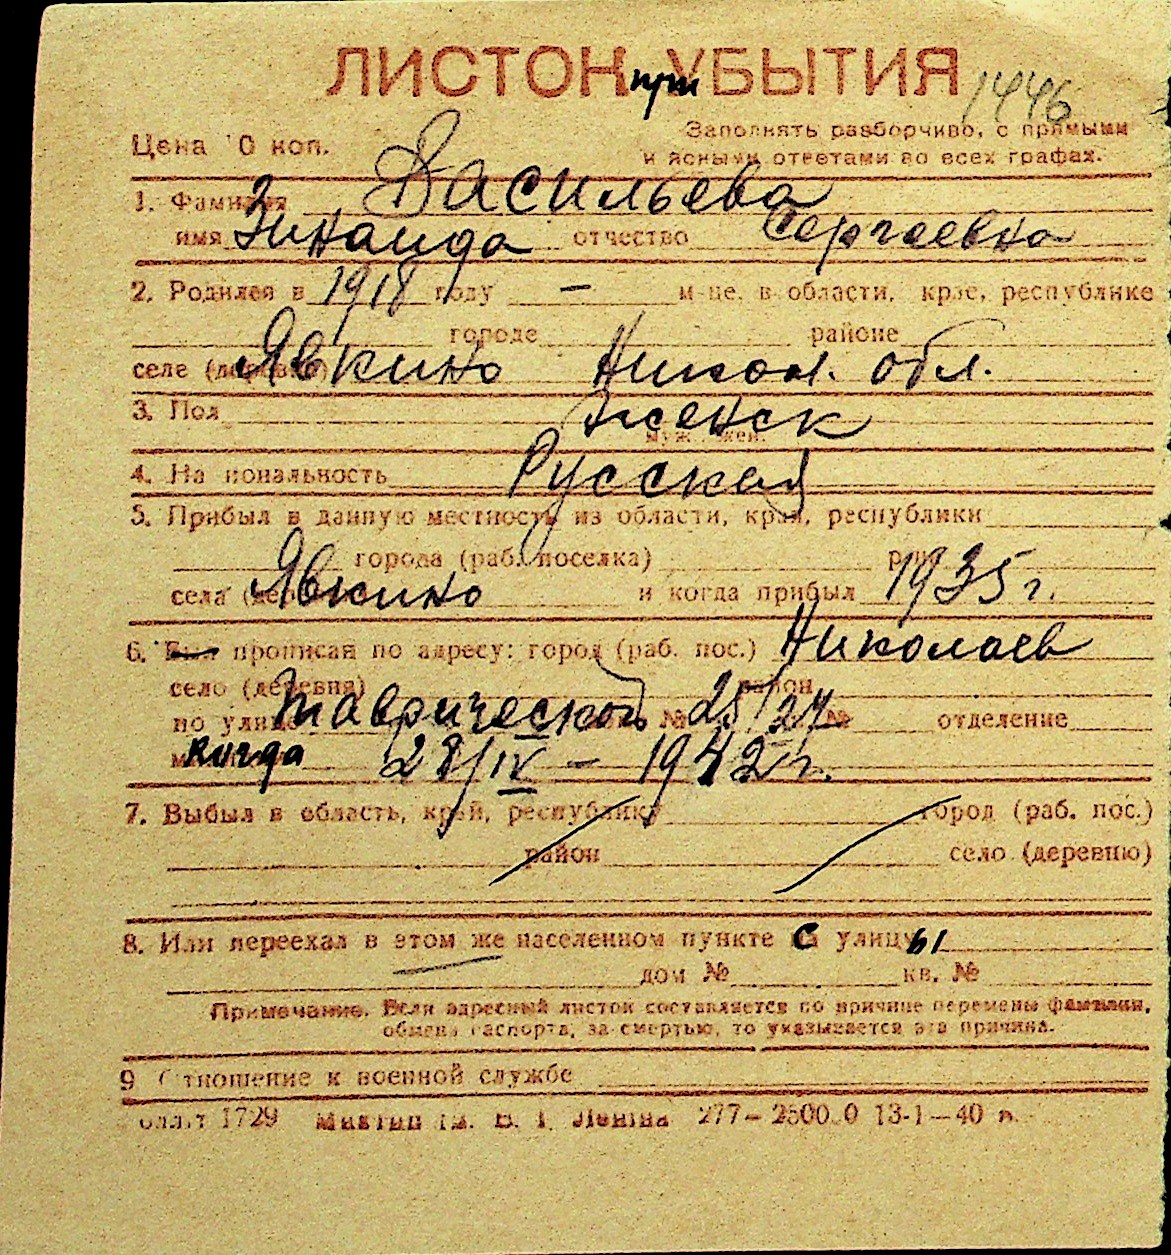 ЛИСТОК при УБЫТИЯ 1446
Цена 0 коп. Заполнять разборчиво, с прямыми
и ясными ответами во всех графах.
1. Фамилия Васильева
имя Зинаида отчество Сергеевна
2. Родился в 1918 году – м-це, в области, крае, республике
городе районе
селе (деревне) Явкино Никол. обл.
3. Пол женск
муж. жен.
4. Национальность Русская
5. Прибыл в данную местность из области, края, республики
города (раб. поселка)
села Явкино и когда прибыл 1935 г.
6. Был прописан по адресу: город (раб. пос.) Николаев
село (деревня) район
по улице Таврической № 25/27 № отделение
когда 28/IV – 1942 г.
7. Выбыл в область, край, республику город (раб. пос.)
район село (деревню)
8. Или переехал в этом же населенном пункте с улицы
дом № кв. №
Примечание. Если адресный листок составляется по причине перемены фамилии,
обмена паспорта, за смертью, то указывается эта причина.
9 Отношение к военной службе
1729 им. В. І. Леніна 277–2500.0 13-1–40 п.